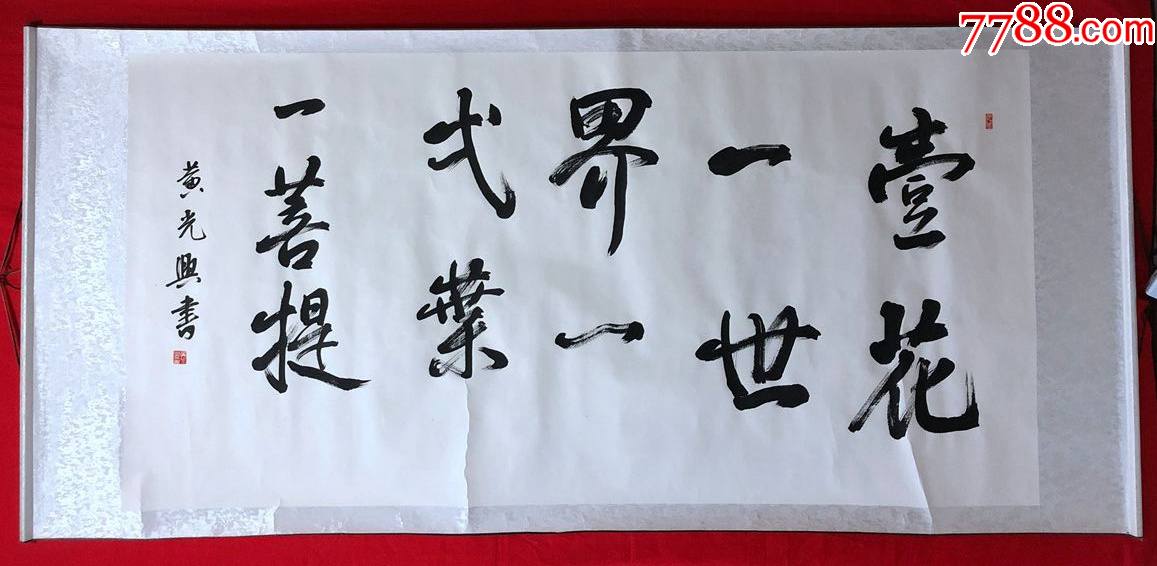 7788.com
壹花
一世
界一
弌葉
一菩提
黄光興書